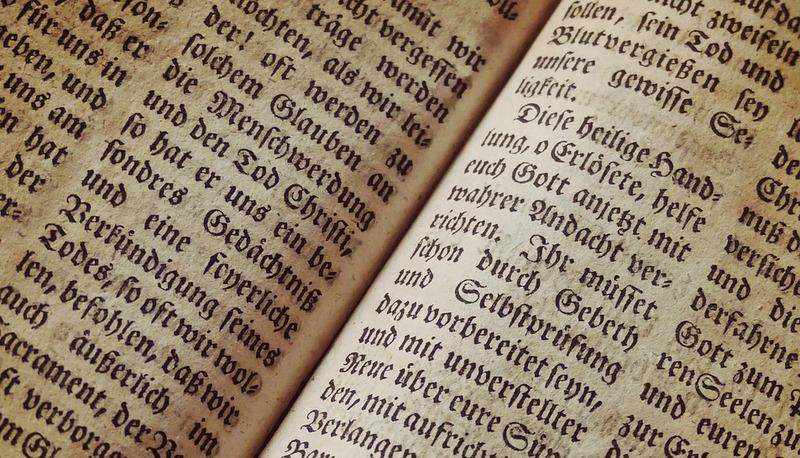 daß er
für uns in
und
uns am
hat
der
er=
wir
vergeſſen
träge werden
möchten, als wir lei=
der! oft werden zu
ſolchem Glauben an
die Menſchwerdung
und den Tod Chriſti,
ſo hat er uns ein be=
ſondres Gedächtniß
und eine feyerliche
Verkündigung ſeines
Todes, ſo oft wir wol=
len, befohlen, daß wir
auch äußerlich im
Sacrament, der
verborge
nicht zweifeln
ſollen, ſein Tod und
Blutvergießen ſey
unſere gewiſſe Se=
ligkeit.
Dieſe heilige Hand=
lung, o Erlöſete, helfe
euch Gott anjetzt mit
wahrer Andacht ver=
richten. Ihr müſſet
ſchon durch Gebeth
und Selbſtprüfung
dazu vorbereitet ſeyn,
und mit unverſtellter
Reue über eure Sün=
den, mit aufrich
Verlangen
Chr
nuß
verſiche
und die
derfahrne
Gott zum
ren Seelen zu
und euren
zur